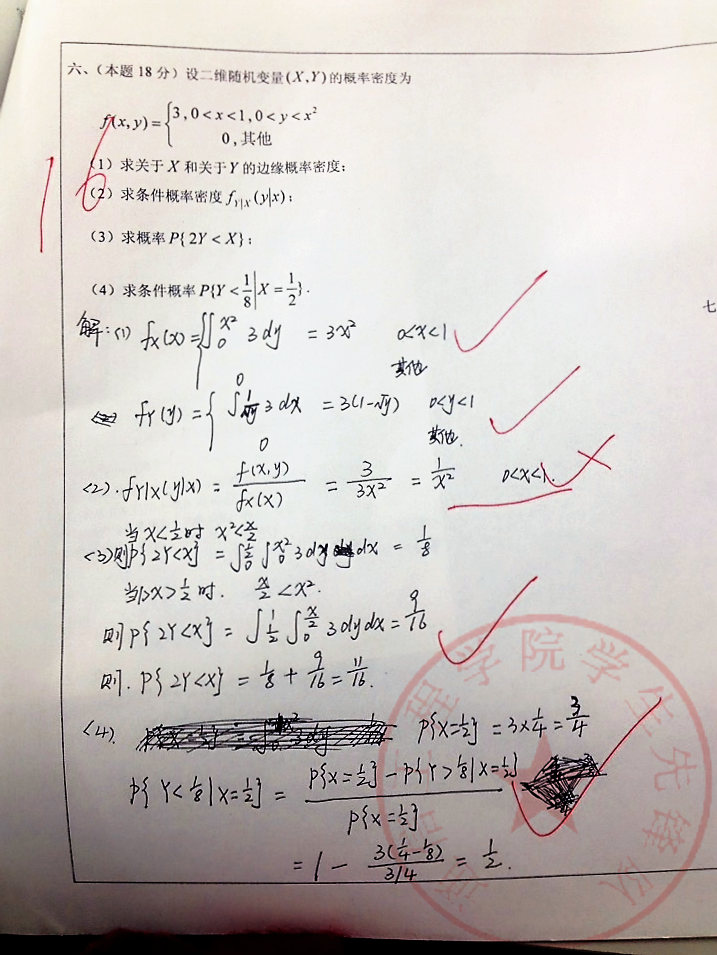 六、（本题 18 分）设二维随机变量(X,Y)的概率密度为
f(x,y)={3, 0<x<1, 0<y<x²
0, 其他
16
（1）求关于 X 和关于 Y 的边缘概率密度；
（2）求条件概率密度 f_{Y|X}(y|x)；
（3）求概率 P{2Y<X}；
（4）求条件概率 P{Y<1/8|X=1/2}．
七
解：(1) fx(x)={∫₀^{x²} 3dy = 3x² 0<x<1
0 其他
fY(y)={∫_{√y}^1 3dx = 3(1-√y) 0<y<1
0 其他.
(2). fY|X(y|x) = f(x,y)/fx(x) = 3/3x² = 1/x² 0<x<1.
当x<1/2时 x²<x/2
(3)则P{2Y<X} = ∫₀^{1/2}∫₀^{x²} 3dydx = 1/8
当1>x>1/2时. x/2<x².
则P{2Y<X} = ∫_{1/2}∫₀^{x/2} 3dydx = 9/16
则. P{2Y<X} = 1/8 + 9/16 = 11/16.
(4). P{X=1/2} = 3×1/4 = 3/4
P{Y<1/8|X=1/2} = P{X=1/2}-P{Y>1/8|X=1/2}/P{X=1/2}
= 1 - 3(1/4-1/8)/3/4 = 1/2.
程学院学生先锋队